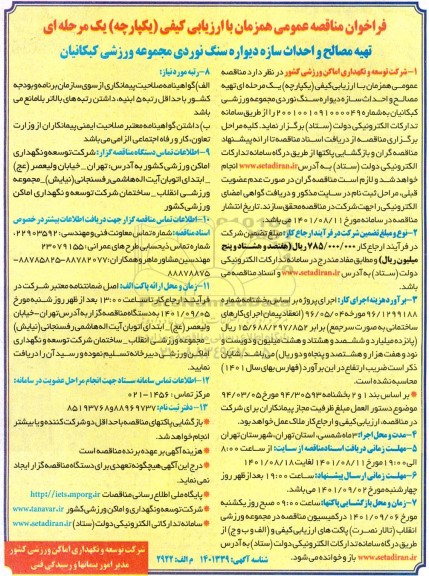 فراخوان مناقصه عمومی همزمان با ارزیابی کیفی (یکپارچه) یک مرحله ای
تهیه مصالح و احداث سازه دیواره سنگ نوردی مجموعه ورزشی کبکانیان
۱- شرکت توسعه و نگهداری اماکن ورزشی کشور در نظر دارد مناقصه
عمومی همزمان با ارزیابی کیفی (یکپارچه) یک مرحله ای تهیه
مصالح و احداث سازه دیواره سنگ نوردی مجموعه ورزشی
کبکانیان به شماره ۲۰۰۱۰۰۱۰۹۱۰۰۰۰۴۹ را از طریق سامانه
تدارکات الکترونیکی دولت (ستاد) برگزار نماید. کلیه مراحل
برگزاری مناقصه از دریافت اسناد مناقصه تا ارائه پیشنهاد
مناقصه گران و بازگشایی پاکتها از طریق درگاه سامانه تدارکات
الکترونیکی دولت (ستاد) به آدرس www.setadiran.ir انجام
خواهد شد و لازم است مناقصه گران در صورت عدم عضویت
قبلی، مراحل ثبت نام در سایت مذکور و دریافت گواهی امضای
الکترونیکی را جهت شرکت در مناقصه محقق سازند. تاریخ انتشار
مناقصه در سامانه مورخ ۱۴۰۱/۰۸/۱۱ می باشد.
۲- نوع و مبلغ تضمین شرکت در فرآیند ارجاع کار: مبلغ تضمین شرکت
در فرآیند ارجاع کار ۷۸۵/۰۰۰/۰۰۰ ریال (هفتصد و هشتاد و پنج
میلیون ریال) و مطابق مفاد مندرج در سامانه تدارکات الکترونیکی
دولت (ستاد) به آدرس www.setadiran.ir و اسناد مناقصه می
باشد.
۳- برآورد هزینه اجرای کار: اجرای پروژه بر اساس بخشنامه شماره
۹۶/۱۲۹۹۱۸۸ مورخ ۹۶/۰۵/۰۴ (انعقاد پیمان اجرای کارهای
ساختمانی به صورت سرجمع) برابر ۱۵/۶۸۸/۲۹۷/۸۵۲ ریال
(پانزده میلیارد و ششصد و هشتاد و هشت میلیون و دویست و
نود و هفت هزار و هشتصد و پنجاه و دو ریال) می باشد. شایان
ذکر است ضریب ارتفاع در این برآورد (فهارس بهای سال ۱۴۰۱)
محاسبه نشده است.
بر اساس بند ۱ و ۲ بخشنامه ۹۴/۳۰۵۹۳ مورخ ۹۴/۰۳/۰۵
موضوع دستور العمل مبلغ ظرفیت مجاز پیمانکاران برای شرکت
در مناقصه، ارزیابی کیفی و ارجاع کار ملاک عمل خواهد بود.
۴- مدت و محل اجرا: ۳ ماه شمسی، استان تهران، شهرستان تهران
۵- مهلت زمانی دریافت اسناد مناقصه از سایت: از ساعت ۸:۰۰
الی ۱۹:۰۰ مورخ ۱۴۰۱/۰۸/۱۱ لغایت ۱۴۰۱/۰۸/۱۸
۶- مهلت زمانی ارسال پیشنهاد: ساعت ۱۹:۰۰ بعد از ظهر روز
چهارشنبه مورخ ۱۴۰۱/۰۹/۰۲ می باشد.
۷- زمان و محل بازگشایی پاکتها: ساعت ۰۹:۰۰ صبح روز یکشنبه
مورخ ۱۴۰۱/۰۹/۰۶ در کمیسیون مناقصه در مجموعه ورزشی
انقلاب (تالار نصرت) پاکت های ارزیابی کیفی و (الف و ب و ج) از
طریق درگاه سامانه تدارکات الکترونیکی دولت (ستاد) به آدرس
www.setadiran.ir باز و خوانده می شود.
۸- رتبه مورد نیاز:
الف) گواهینامه صلاحیت پیمانکاری از سوی سازمان برنامه و بودجه
کشور با حداقل رتبه ۵ ابنیه، داشتن رتبه های بالاتر بلامانع می
باشد.
ب) داشتن گواهینامه معتبر صلاحیت ایمنی پیمانکاران از وزارت
تعاون، کار و رفاه اجتماعی الزامی می باشد.
۹- اطلاعات تماس دستگاه مناقصه گزار: شرکت توسعه و نگهداری
اماکن ورزشی کشور به آدرس: تهران _ خیابان ولیعصر (عج)
_ ابتدای اتوبان آیت اله هاشمی رفسنجانی (نیایش) _ مجموعه
ورزشی انقلاب _ ساختمان شرکت توسعه و نگهداری اماکن
ورزشی کشور
۱۰- اطلاعات تماس مناقصه گزار جهت دریافت اطلاعات بیشتر در خصوص
اسناد مناقصه: شماره تماس معاونت فنی و مهندسی: ۲۲۹۰۳۵۹۲،
شماره تماس ذیحسابی طرح های عمرانی: ۲۳۰۷۹۱۵۵
مهندسین مشاور ماهر و همکاران: ۸۸۷۸۲۰۷۷-۸۸۷۸۵۸۲۵-
۸۸۷۸۸۷۵
۱۱- زمان و محل ارائه پاکت الف: اصل ضمانتنامه معتبر شرکت در
فرآیند ارجاع کار تا ساعت ۱۳:۰۰ بعد از ظهر روز شنبه مورخ
۱۴۰۱/۰۹/۰۵ به دستگاه مناقصه گزار به آدرس تهران - خیابان
ولیعصر (عج) _ ابتدای اتوبان آیت اله هاشمی رفسنجانی (نیایش)
_ مجموعه ورزشی انقلاب _ ساختمان شرکت توسعه و نگهداری
اماکن ورزشی دبیرخانه تسلیم نموده و رسید آن را دریافت
نمایید.
۱۲- اطلاعات تماس سامانه ستاد جهت انجام مراحل عضویت در سامانه:
مرکز تماس: ۱۴۵۶-۰۲۱
۱۳- دفتر ثبت نام: ۸۸۹۶۹۷۳۷ و ۸۵۱۹۳۷۶۸
بازگشایی پاکتهای مناقصه با حداقل دو شرکت کننده و یا بیشتر
انجام خواهد شد.
هزینه آگهی بر عهده برنده مناقصه است
درج این آگهی هیچگونه تعهدی برای دستگاه مناقصه گزار ایجاد
نمی نماید.
پایگاه ملی اطلاع رسانی مناقصات http//iets.mporg.ir
شرکت توسعه و نگهداری اماکن ورزشی کشور www.tanavar.ir
سامانه تدارکاتی الکترونیکی دولت (ستاد) www.setadiran.ir
شناسه آگهی: ۱۴۰۱۳۳۹ م الف: ۲۹۲۲
شرکت توسعه و نگهداری اماکن ورزشی کشور
مدیر امور پیمانها و رسیدگی فنی